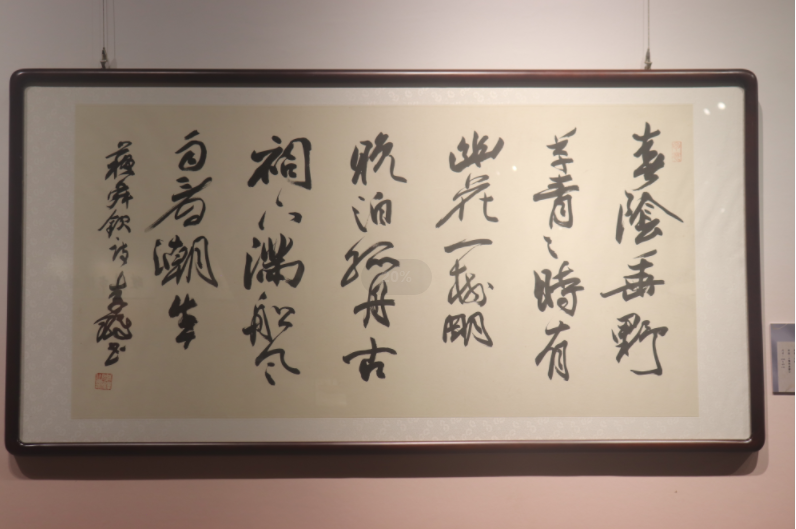 春陰垂野
草青〻時有
幽花一樹明
晚泊孤舟古
祠下滿船风
雨看潮生
蘇舜欽詩 书